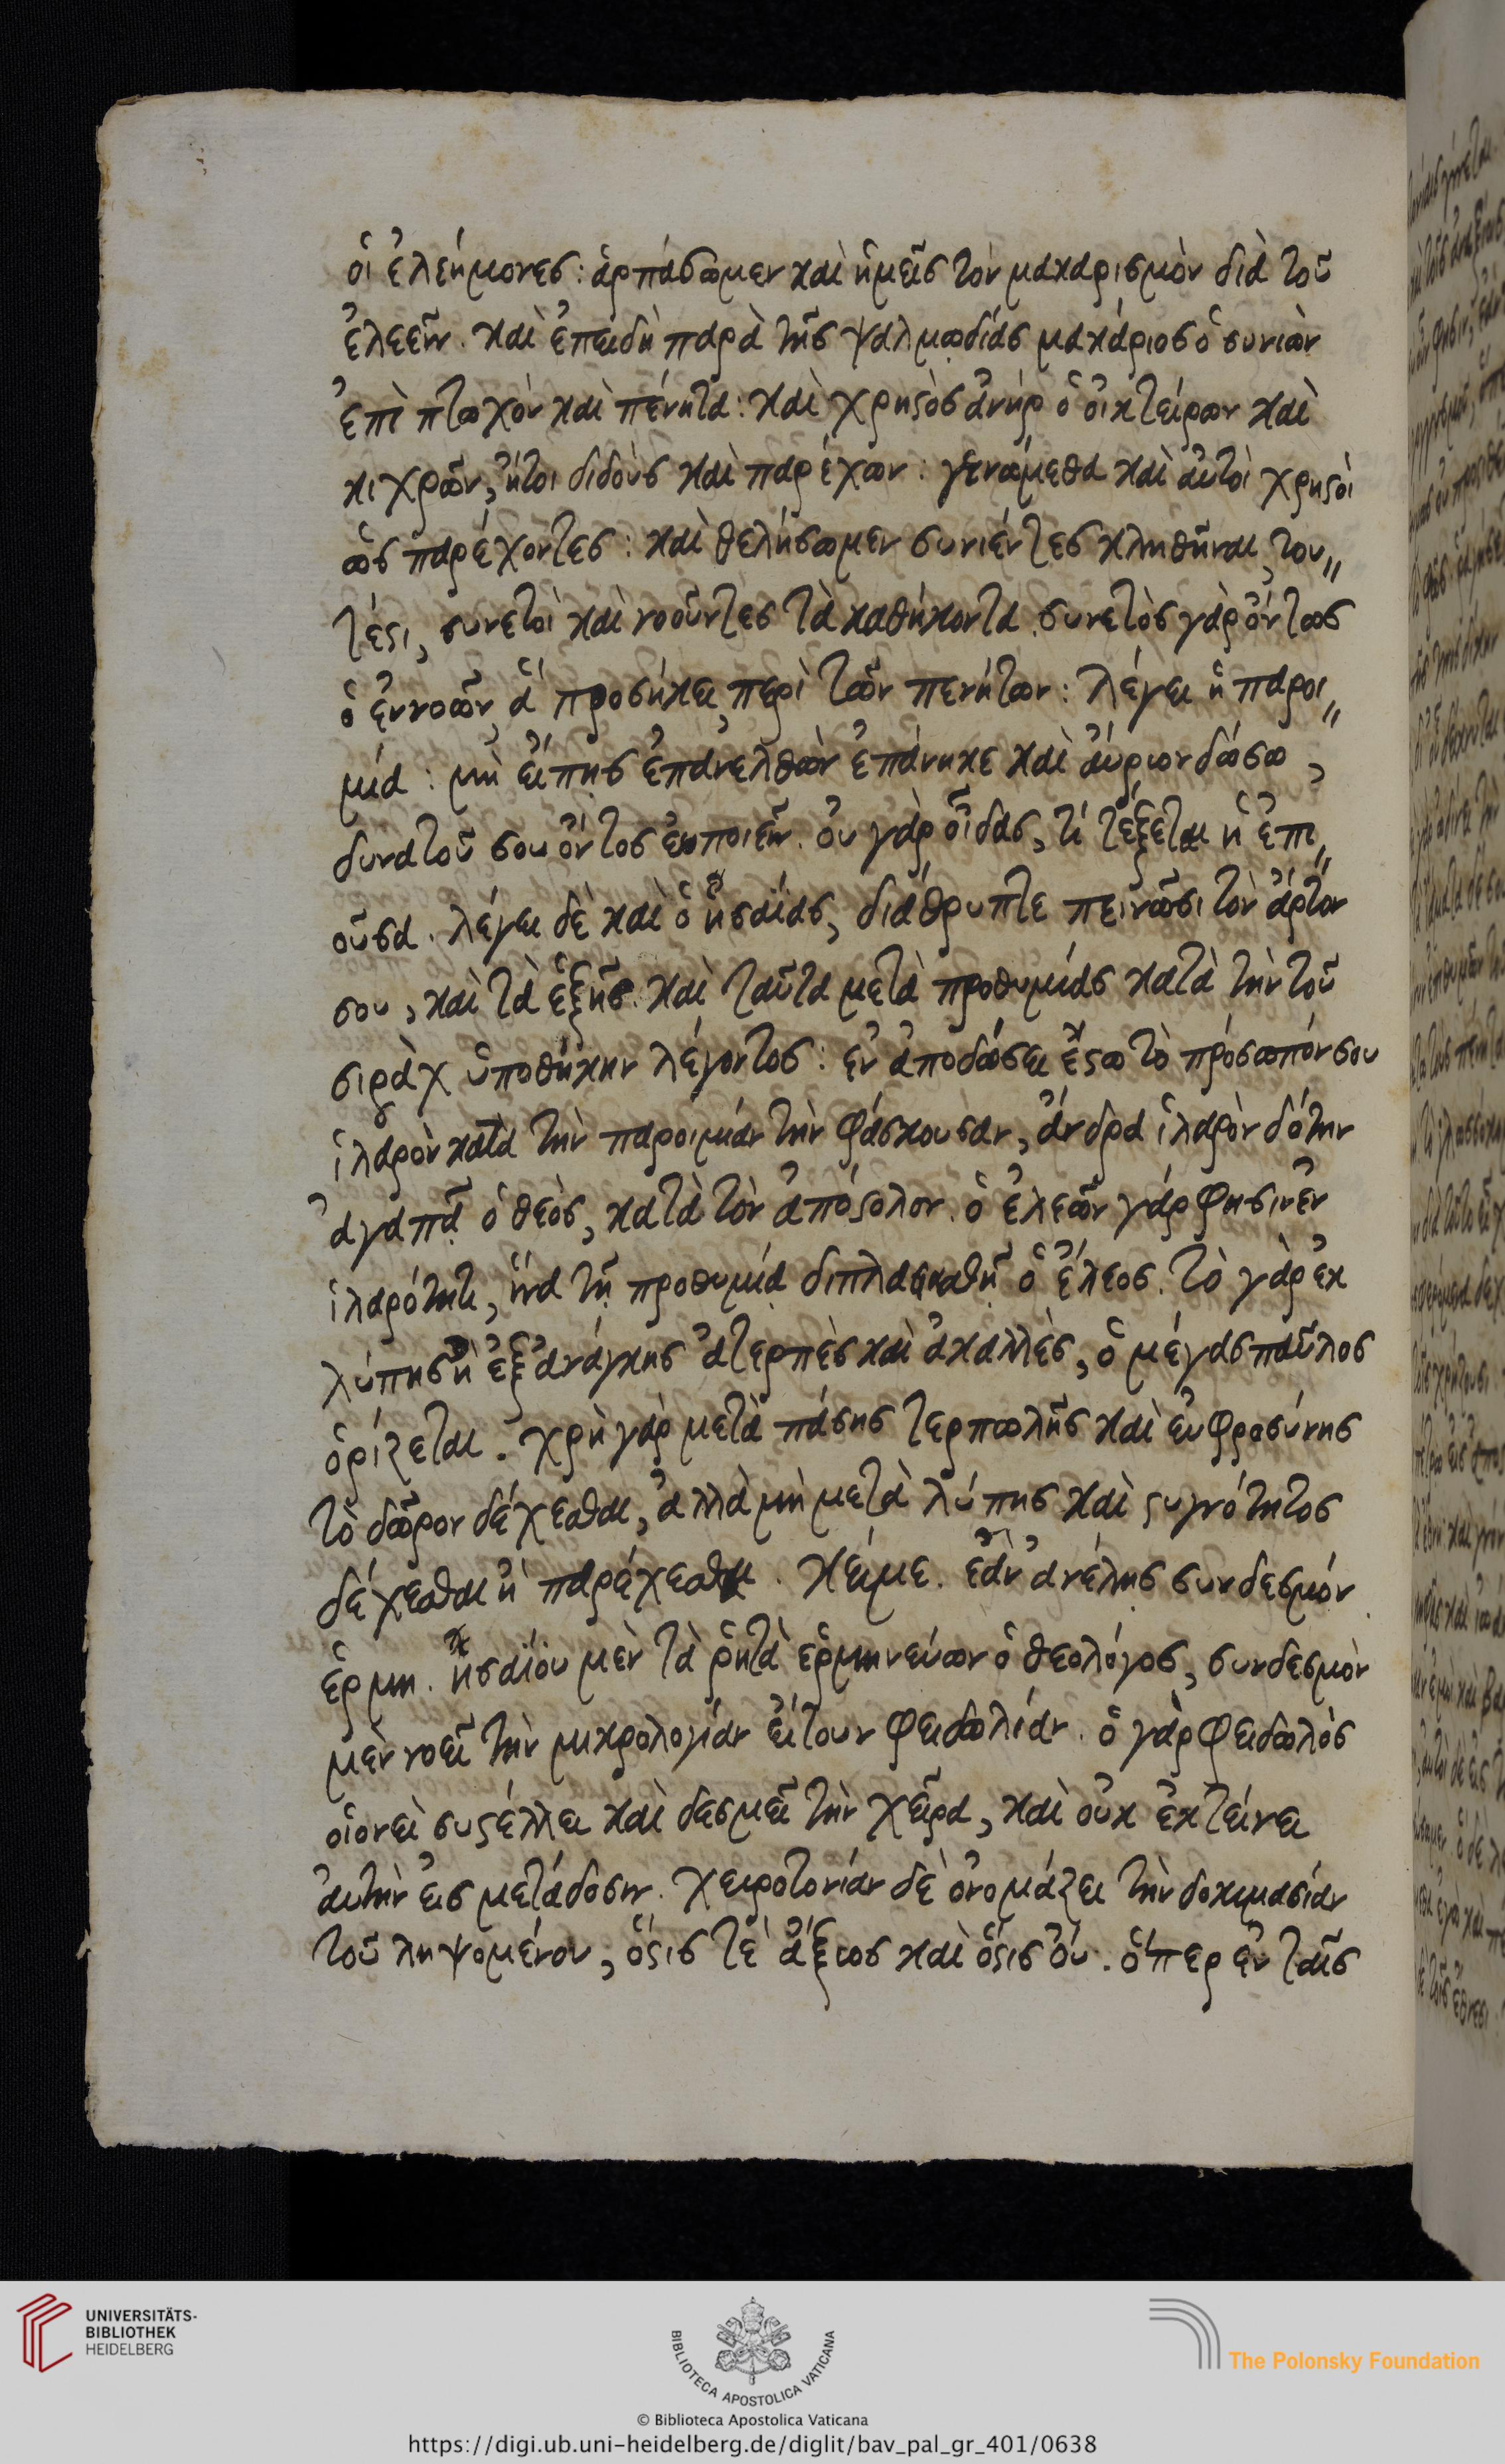 οἱ ἐλεήμονες: ἁρπάσωμεν καὶ ἡμεῖς τὸν μακαρισμὸν διὰ τοῦ
ἐλεεῖν. καὶ ἐπειδὴ παρὰ τῆς ψαλμῳδίας μακάριος ὁ συνιὼν
ἐπὶ πτωχὸν καὶ πένητα: καὶ χρηϛὸς ἀνὴρ ὁ οἰκτείρων καὶ
κιχρῶν, ἤτοι διδοὺς καὶ παρέχων: γενώμεθα καὶ αὐτοὶ χρηϛοὶ
ὡς παρέχοντες: καὶ θελήσωμεν συνιέντες κληθῆναι, του〃
τέϛι, συνετοὶ καὶ νοοῦντες τὰ καθήκοντα. συνετὸς γὰρ ὄντως
ὁ ἐννοῶν, ἃ προσήκει περὶ τῶν πενήτων: λέγει ἡ παροι〃
μία: μὴ εἴπῃς ἐπανελθὼν ἐπάνηκε καὶ αὔριον δώσω,
δυνατοῦ σου ὄντος εὐποιεῖν. οὐ γὰρ οἶδας, τί τέξεται ἡ ἐπι〃
οῦσα. λέγει δὲ καὶ ὁ ἡσαΐας, διάθρυπτε πεινῶσι τὸν ἄρτον
σου, καὶ τὰ ἑξῆς. καὶ ταῦτα μετὰ προθυμίας κατὰ τὴν τοῦ
σιρὰχ ὑποθήκην λέγοντος: ἐν ἀποδώσει ἔϛω τὸ πρόσωπόν σου
ἱλαρὸν κατὰ τὴν παροιμίαν τὴν φάσκουσαν, ἄνδρα ἱλαρὸν δότην
ἀγαπᾷ ὁ θεὸς, κατὰ τὸν ἀπόϛολον. ὁ ἐλεῶν γάρ φησιν ἐν
ἱλαρότητι, ἵνα τῇ προθυμίᾳ διπλασιασθῇ ὁ ἔλεος. τὸ γὰρ ἐκ
λύπης ἢ ἐξ ἀνάγκης ἀτερπὲς καὶ ἀκαλλὲς, ὁ μέγας παῦλος
ὁρίζεται. χρὴ γὰρ μετὰ πάσης τερπωλῆς καὶ εὐφροσύνης
τὸ δῶρον δέχεσθαι, ἀλλὰ μὴ μετὰ λύπης καὶ ϛυγνότητος
δέχεσθαι ἢ παρέχεσθαι. κείμε. ἐὰν ἀνέλῃς συνδεσμόν
ἑρμη. ἡσαΐου μὲν τὰ ῥητὰ ἑρμηνεύων ὁ θεολόγος, συνδεσμὸν
μὲν νοεῖ τὴν μικρολογίαν εἴτουν φειδωλίαν. ὁ γὰρ φειδωλὸς
οἱονεὶ συϛέλλει καὶ δεσμεῖ τὴν χεῖρα, καὶ οὐκ ἐκτείνει
αὐτὴν εἰς μετάδοσιν. χειροτονίαν δὲ ὀνομάζει τὴν δοκιμασίαν
τοῦ ληψομένου, ὅϛις τὲ ἄξιος καὶ ὅϛις οὐ. ὅπερ ἐν ταῖς
UNIVERSITÄTS-
BIBLIOTHEK
HEIDELBERG
BIBLIOTECA APOSTOLICA VATICANA
The Polonsky Foundation
© Biblioteca Apostolica Vaticana
https://digi.ub.uni-heidelberg.de/diglit/bav_pal_gr_401/0638